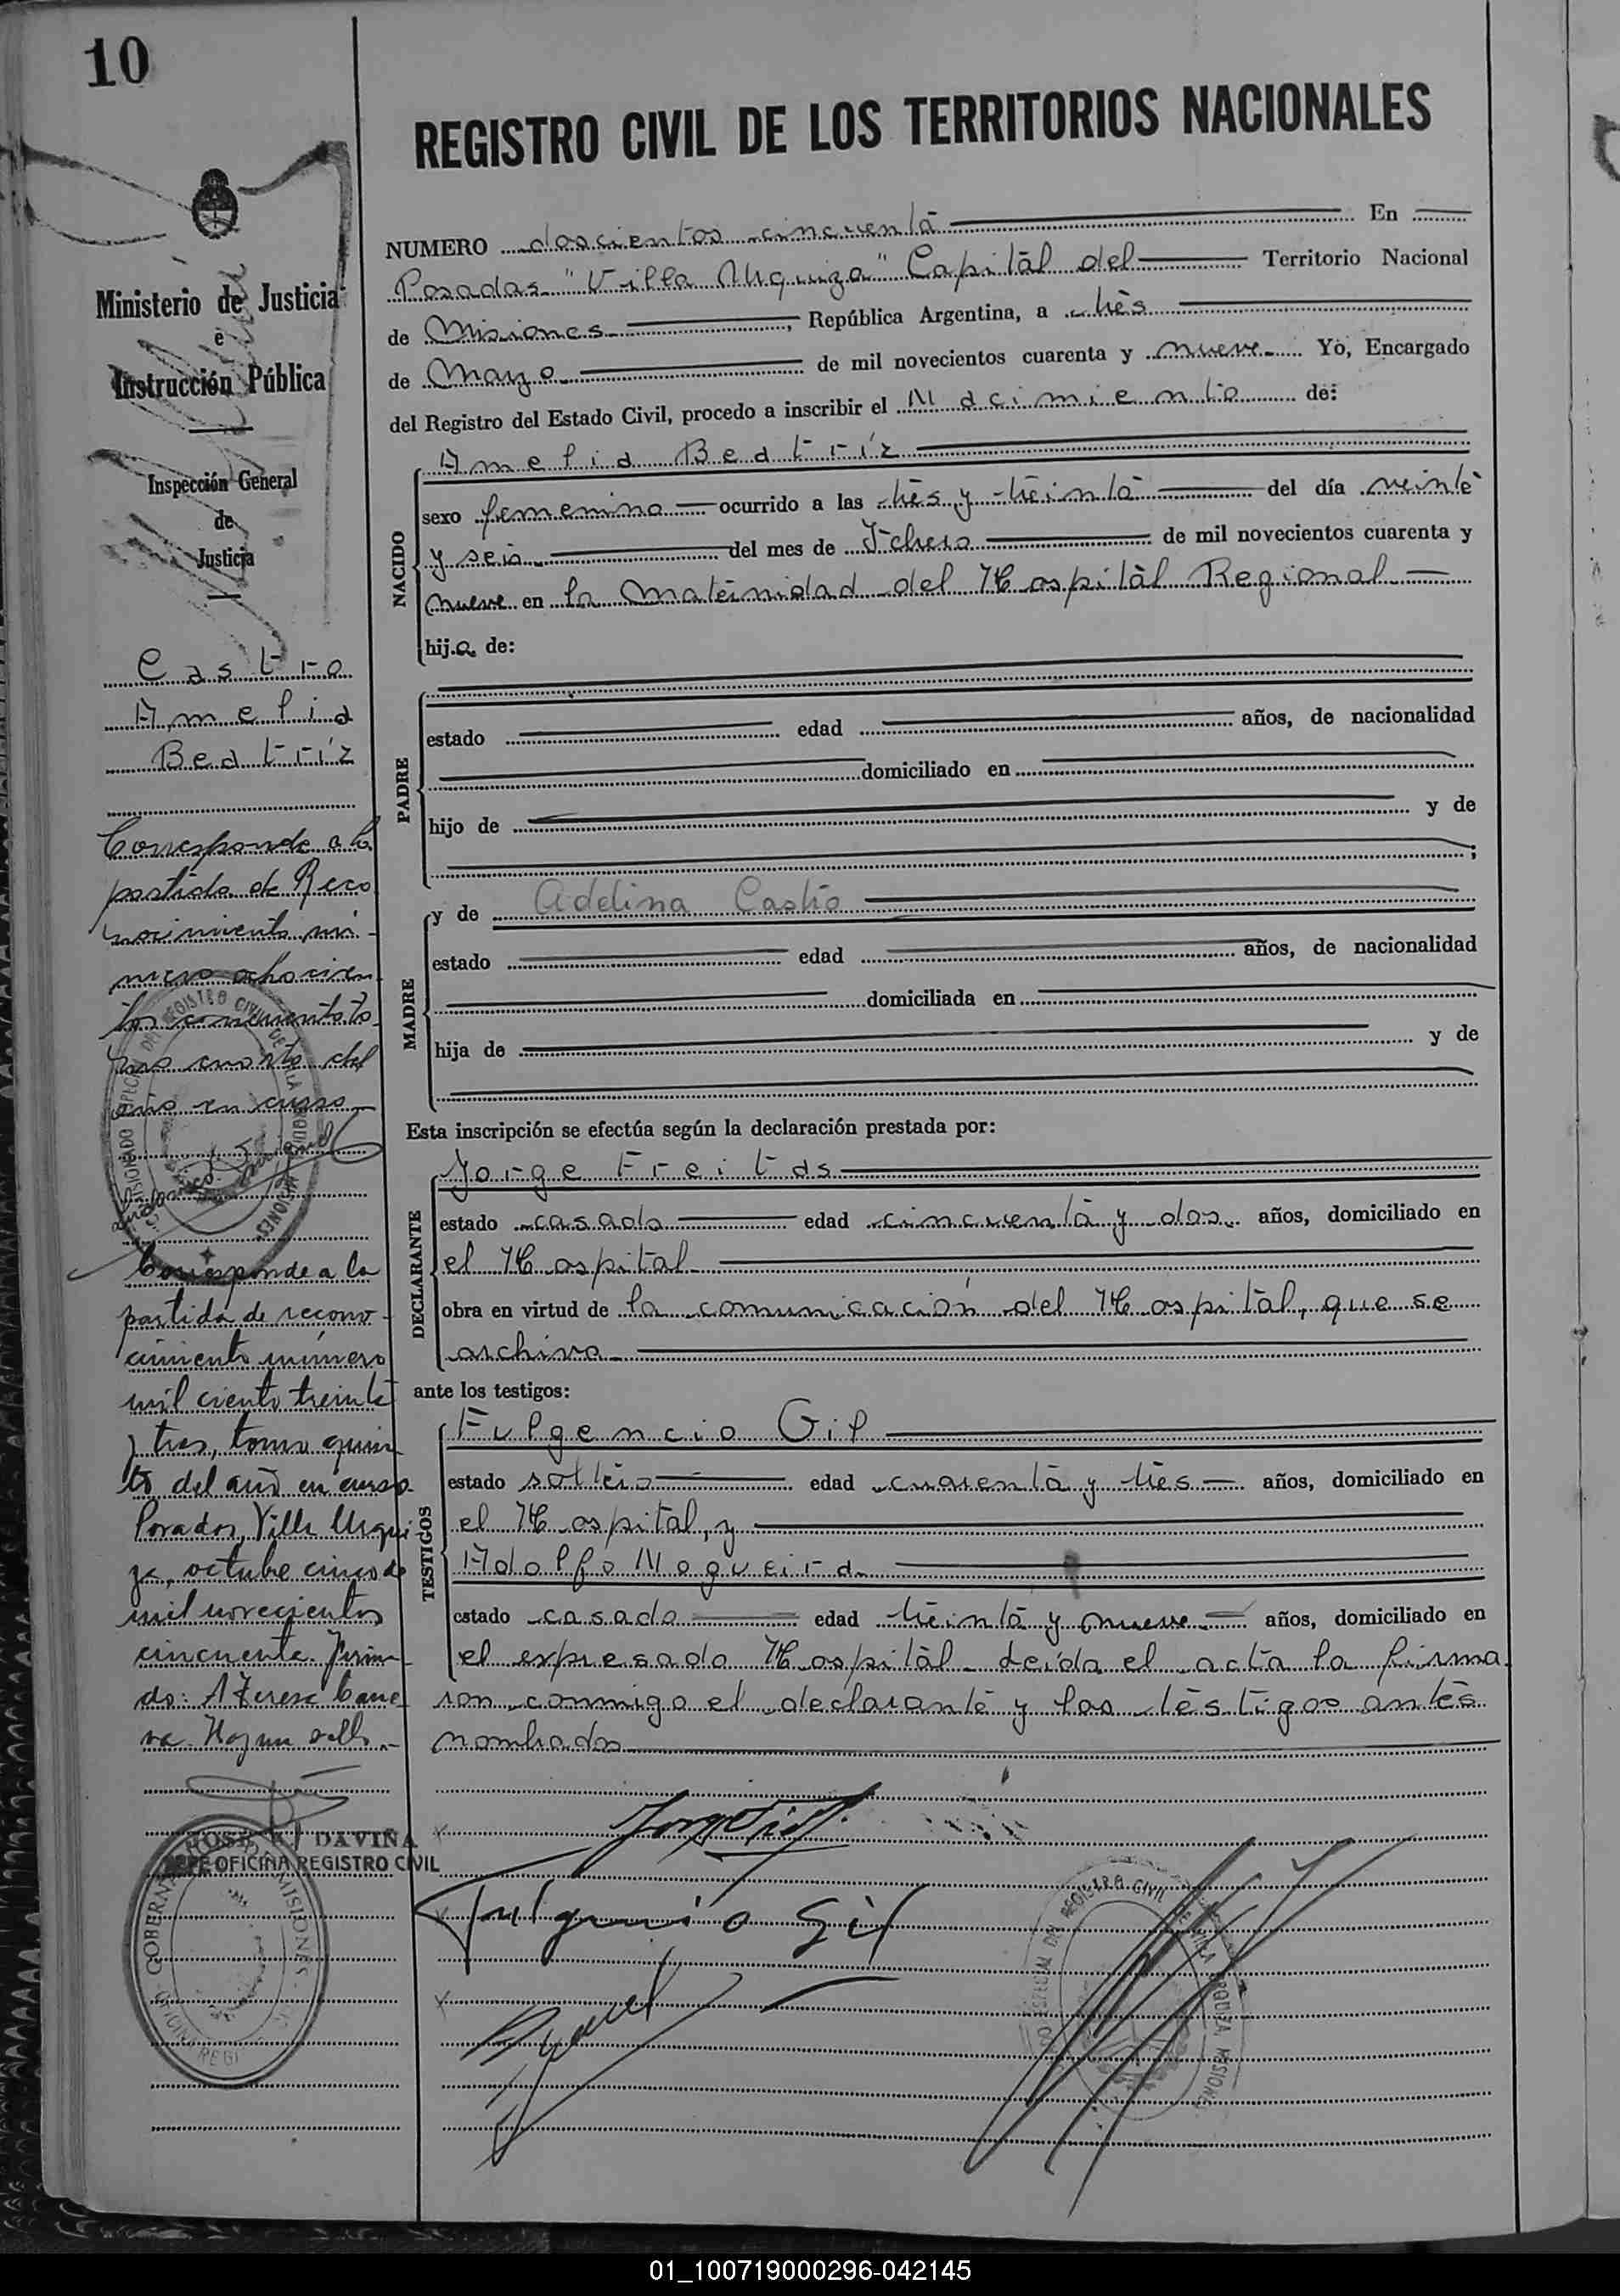 10
REGISTRO CIVIL DE LOS TERRITORIOS NACIONALES
Ministerio de Justicia
e
Instrucción Pública
Inspección General
de
Justicia
Castro
Amelia
Beatríz
Corresponde a la
partida de Reco
nocimiento nú-
mero ochocien
tos
tomo cuarto del
año en curso
Corresponde a la
partida de recono-
cimiento número
mil ciento treinta
y tres, tomo quin
to del año en curso.
Posadas, Villa Urqui
za, octubre cinco de
mil novecientos
cincuenta. Firma-
do: A Teresa
va. Hay un sello.-
JOSE DAVIÑA
JEFE OFICINA REGISTRO CIVIL
GOBERN MISIONES
NUMERO doscientos cincuenta En
Posadas "Villa Urquiza" Capital del Territorio Nacional
de Misiones, República Argentina, a tres
de Marzo de mil novecientos cuarenta y nueve. Yo, Encargado
del Registro del Estado Civil, procedo a inscribir el Nacimiento de:
NACIDO
Amelia Beatríz
sexo femenino ocurrido a las tres y treinta del día veinte
y seis del mes de Febrero de mil novecientos cuarenta y
nueve en la Maternidad del Hospital Regional
hija de:
PADRE
estado edad años, de nacionalidad
domiciliado en
hijo de y de
;
MADRE
y de Adelina Castro
estado edad años, de nacionalidad
domiciliada en
hija de y de
Esta inscripción se efectúa según la declaración prestada por:
DECLARANTE
Jorge Freitas
estado casado edad cincuenta y dos. años, domiciliado en
el Hospital
obra en virtud de la comunicación del Hospital, que se
archiva
ante los testigos:
TESTIGOS
Fulgencio Gil
estado soltero edad cuarenta y tres años, domiciliado en
el Hospital, y
Adolfo Nogueira
estado casado edad treinta y nueve años, domiciliado en
el expresado Hospital. Leída el acta la firma
ron conmigo el declarante y los testigos antes
nombrados
Fulgencio Gil
REGISTRO CIVIL
01_100719000296-042145